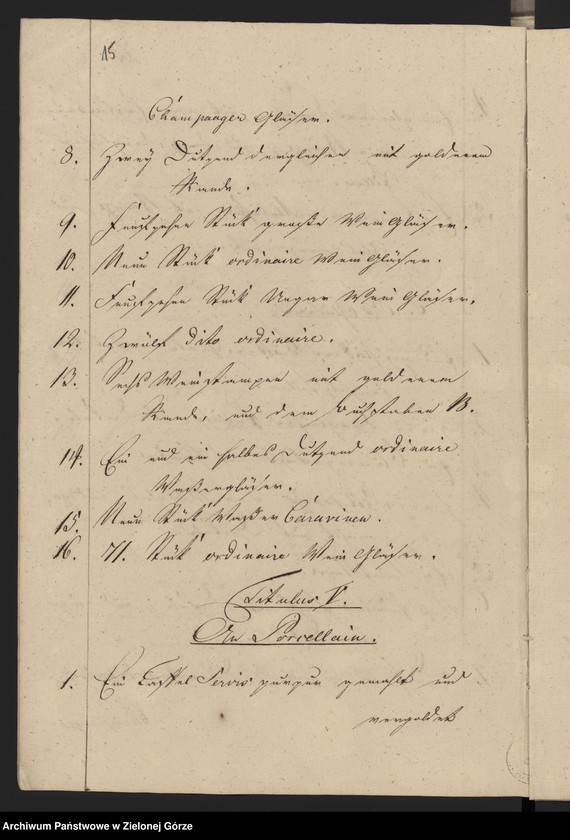 15
Champagner Gläser.
8. Zwey Dutzend dergleichen mit goldenem
Rande.
9. Funfzehen Stück große Wein Gläser.
10. Neun Stück ordinaire Wein Gläser.
11. Funfzehen Stück Ungar Wein Gläser.
12. Zwölf dito ordinaire.
13. Sechs Weinstampen mit goldenem
Rande, und dem Buchstaben B.
14. Ein und ein halbes Dutzend ordinaire
Waßergläser.
15. Neun Stück Waßer Caravinen.
16. 71. Stück ordinaire Wein Gläser.
Titulus V.
An Porcellain.
1. Ein Taffel Servis purpur gemahlt und
vergoldet
Archiwum Państwowe w Zielonej Górze